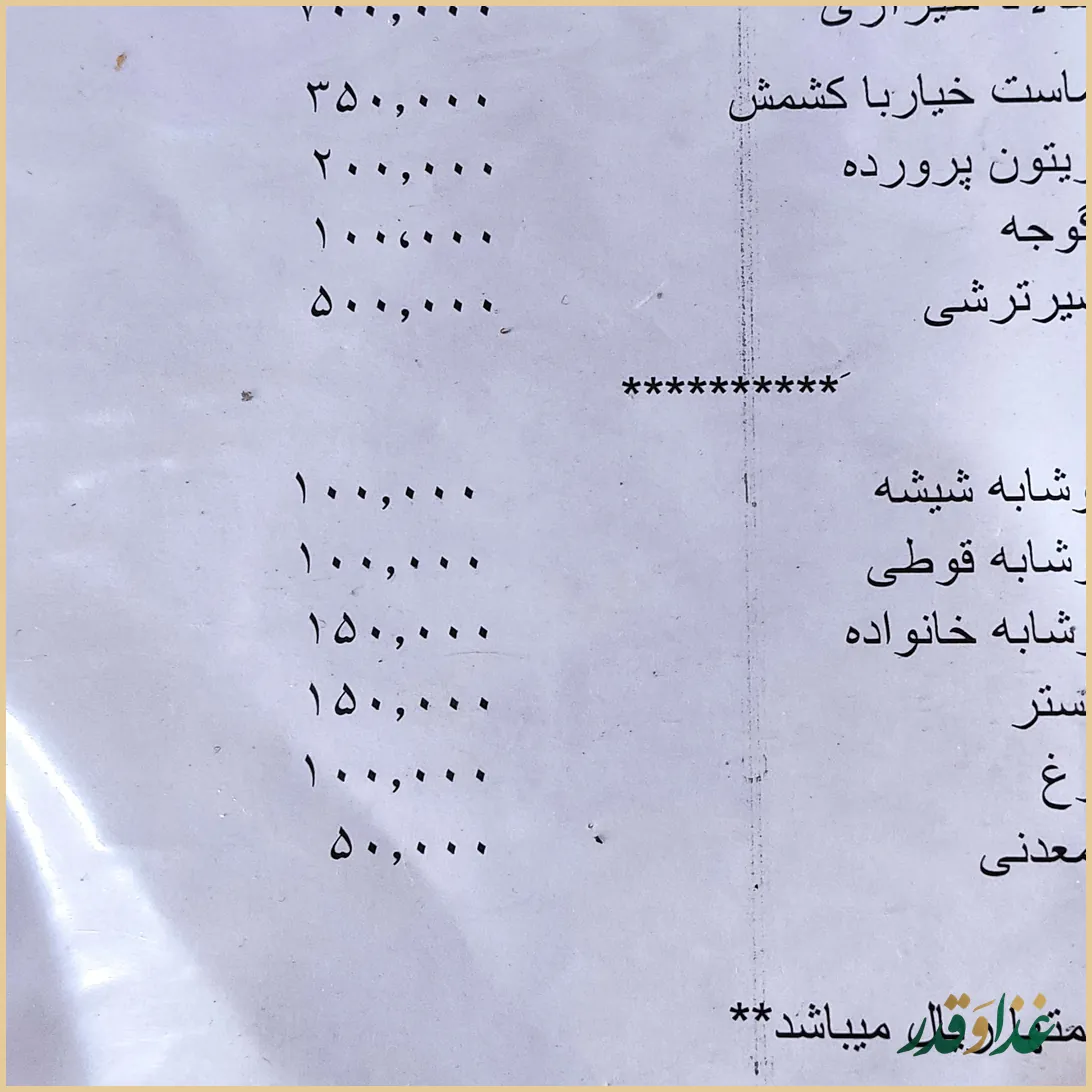 شیرازی ۲۰۰,۰۰۰
ماست خیاربا کشمش ۳۵۰,۰۰۰
یتون پرورده ۲۰۰,۰۰۰
گوجه ۱۰۰،۰۰۰
یرترشی ۵۰۰,۰۰۰
**********
شابه شیشه ۱۰۰,۰۰۰
شابه قوطی ۱۰۰,۰۰۰
شابه خانواده ۱۵۰,۰۰۰
ستر ۱۵۰,۰۰۰
غ ۱۰۰,۰۰۰
معدنی ۵۰,۰۰۰
متها ریال میباشد**
غذا و قدر